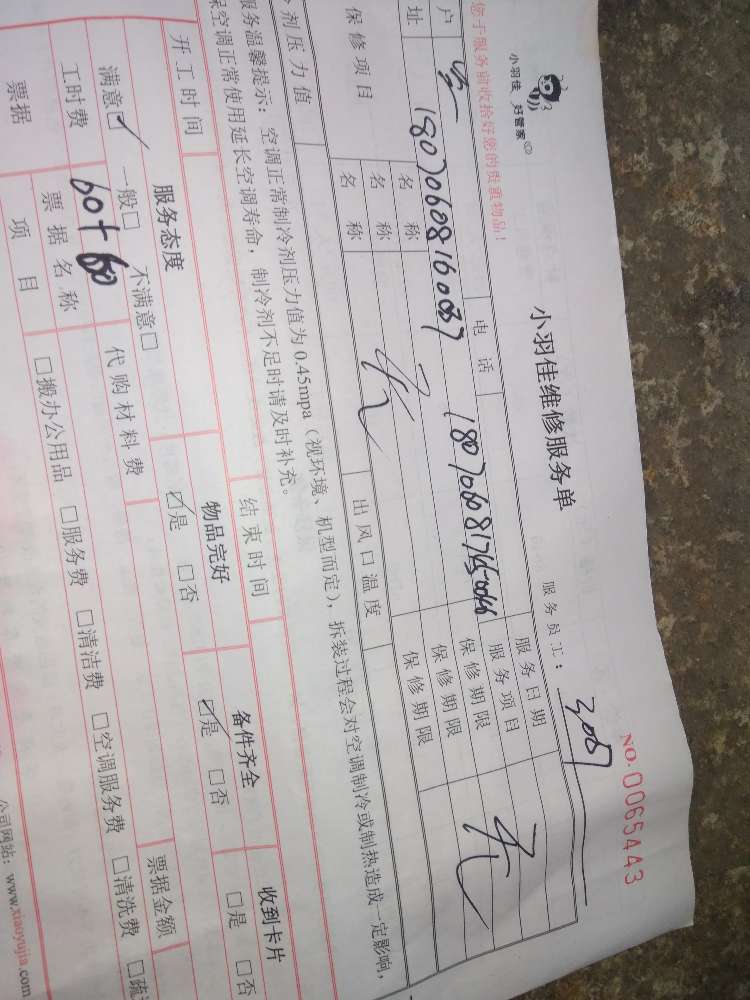 小羽佳 好管家
您于服务前收拾好您的贵重物品!
小羽佳维修服务单
NO.0065443
服务员工: 3007
户
电话
服务日期
址
服务项目
18070608160087
18070608175004
保修项目
名称
保修期限
名称
保修期限
名称
保修期限
无
无
剂压力值
出风口温度
服务温馨提示: 空调正常制冷剂压力值为 0.45mpa (视环境、机型而定), 拆装过程会对空调制冷或制热造成一定影响,
保空调正常使用延长空调寿命, 制冷剂不足时请及时补充。
开工时间
结束时间
服务态度
物品完好
备件齐全
收到卡片
满意☑ 一般□ 不满意□
☑是 □否
☑是 □否
□是 □否
工时费
60+60
代购材料费
票据
票据名称
票据金额
项目
□搬办公用品 □服务费 □清洁费 □空调服务费 □清洗费 □疏
公司网站: www.xiaoyujia.com